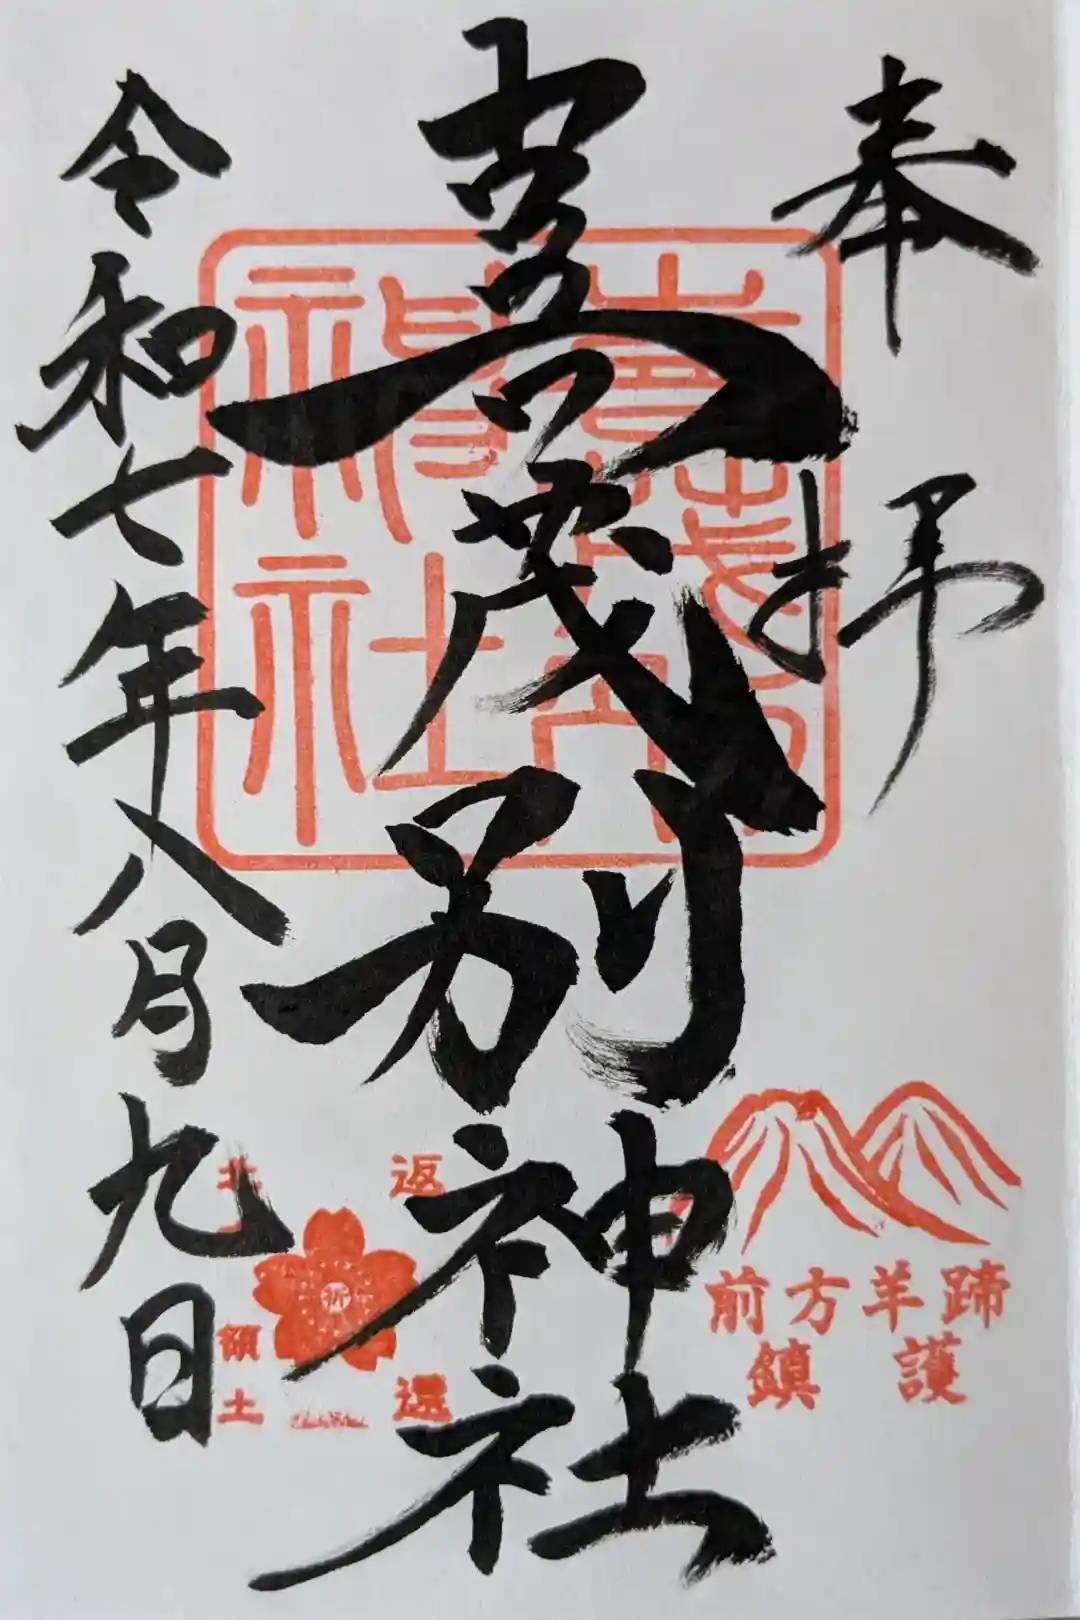 奉拝
喜茂別神社
令和七年八月九日
蹄羊方前
護鎮
返還
北 領土
祈